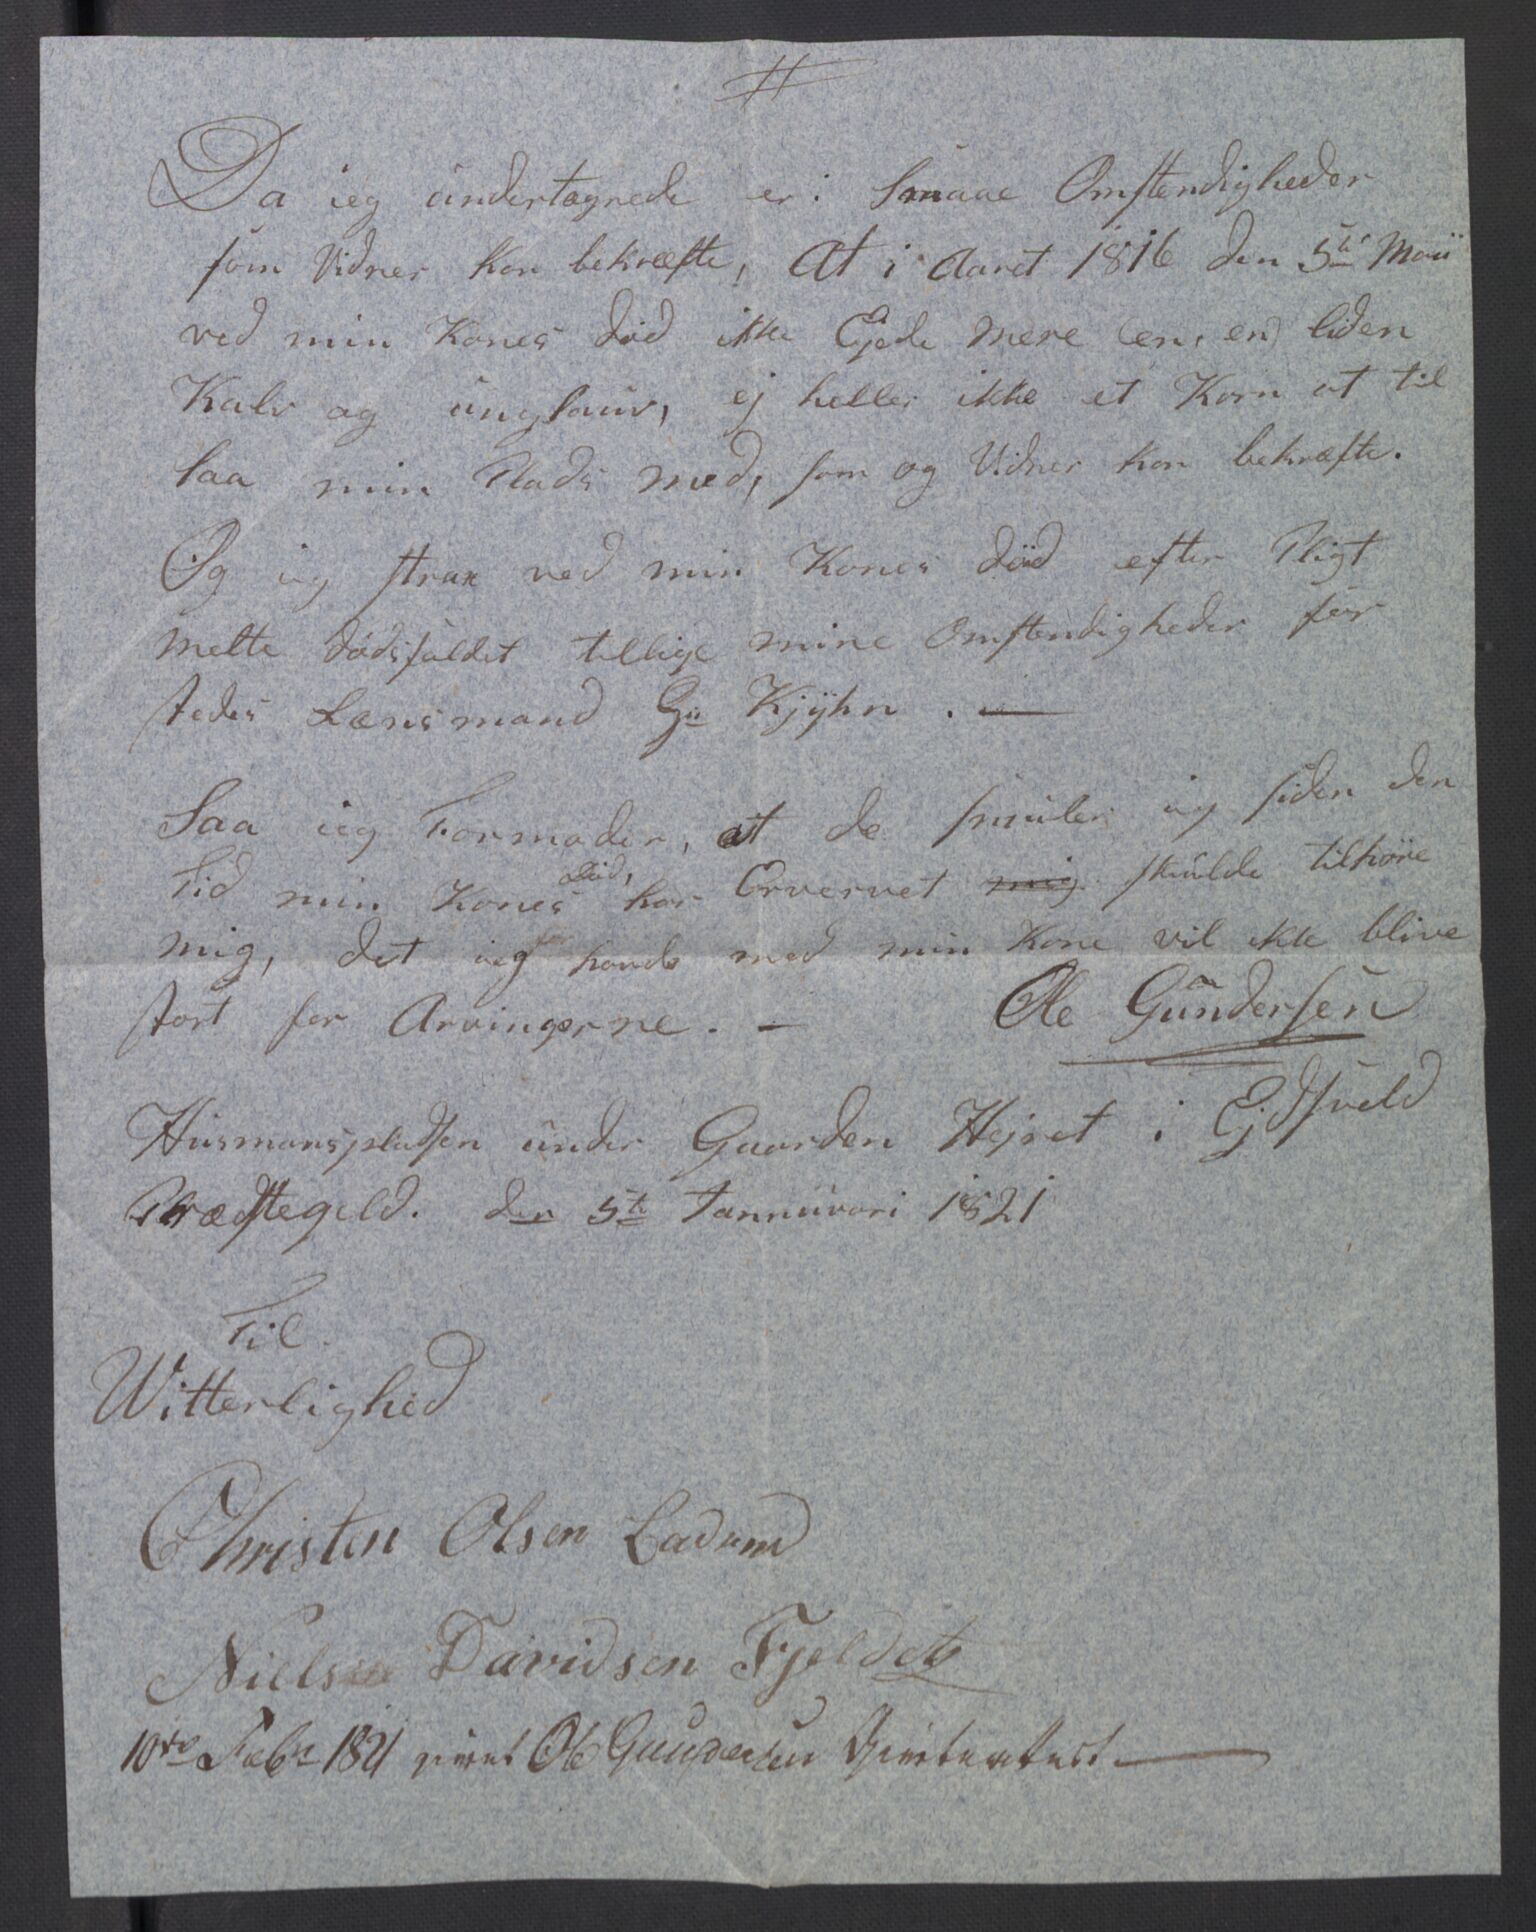 Da ieg undertegnede er i Smaae Omstendigheder
som Vidner kan bekræfte, At i Aaret 1816 den 5te Maii
ved min Kones död ikke Ejede Mere (en, en) liden
Kalv og ej heller ikke et Korn at til
Saa min Plads med, som og Vidner kan bekræfte.
Og ieg strax ved min Kones död efter Pligt
melte dødsfaldet tillige mine Omstendigheder for
stedes Lænsmand Gu Kjÿhn . —
Saa ieg Formoder, at de smuler ieg siden den
Tid min Kones död, har Ervervet mig skulde tilhöre
mig, det ieg før havde med min Kone vil ikke blive
stort for Arvingerne. — Ole Gundersen
Husmanspladsen under Gaarden Hejret i Ejdsveld
Præstegield. den 5te Jannuvari 1821
Til
Witterlighed
Christen Olsen Ladum
Niels Davidsen Fjeldet
10de Febr 1821 Ole Gundersen